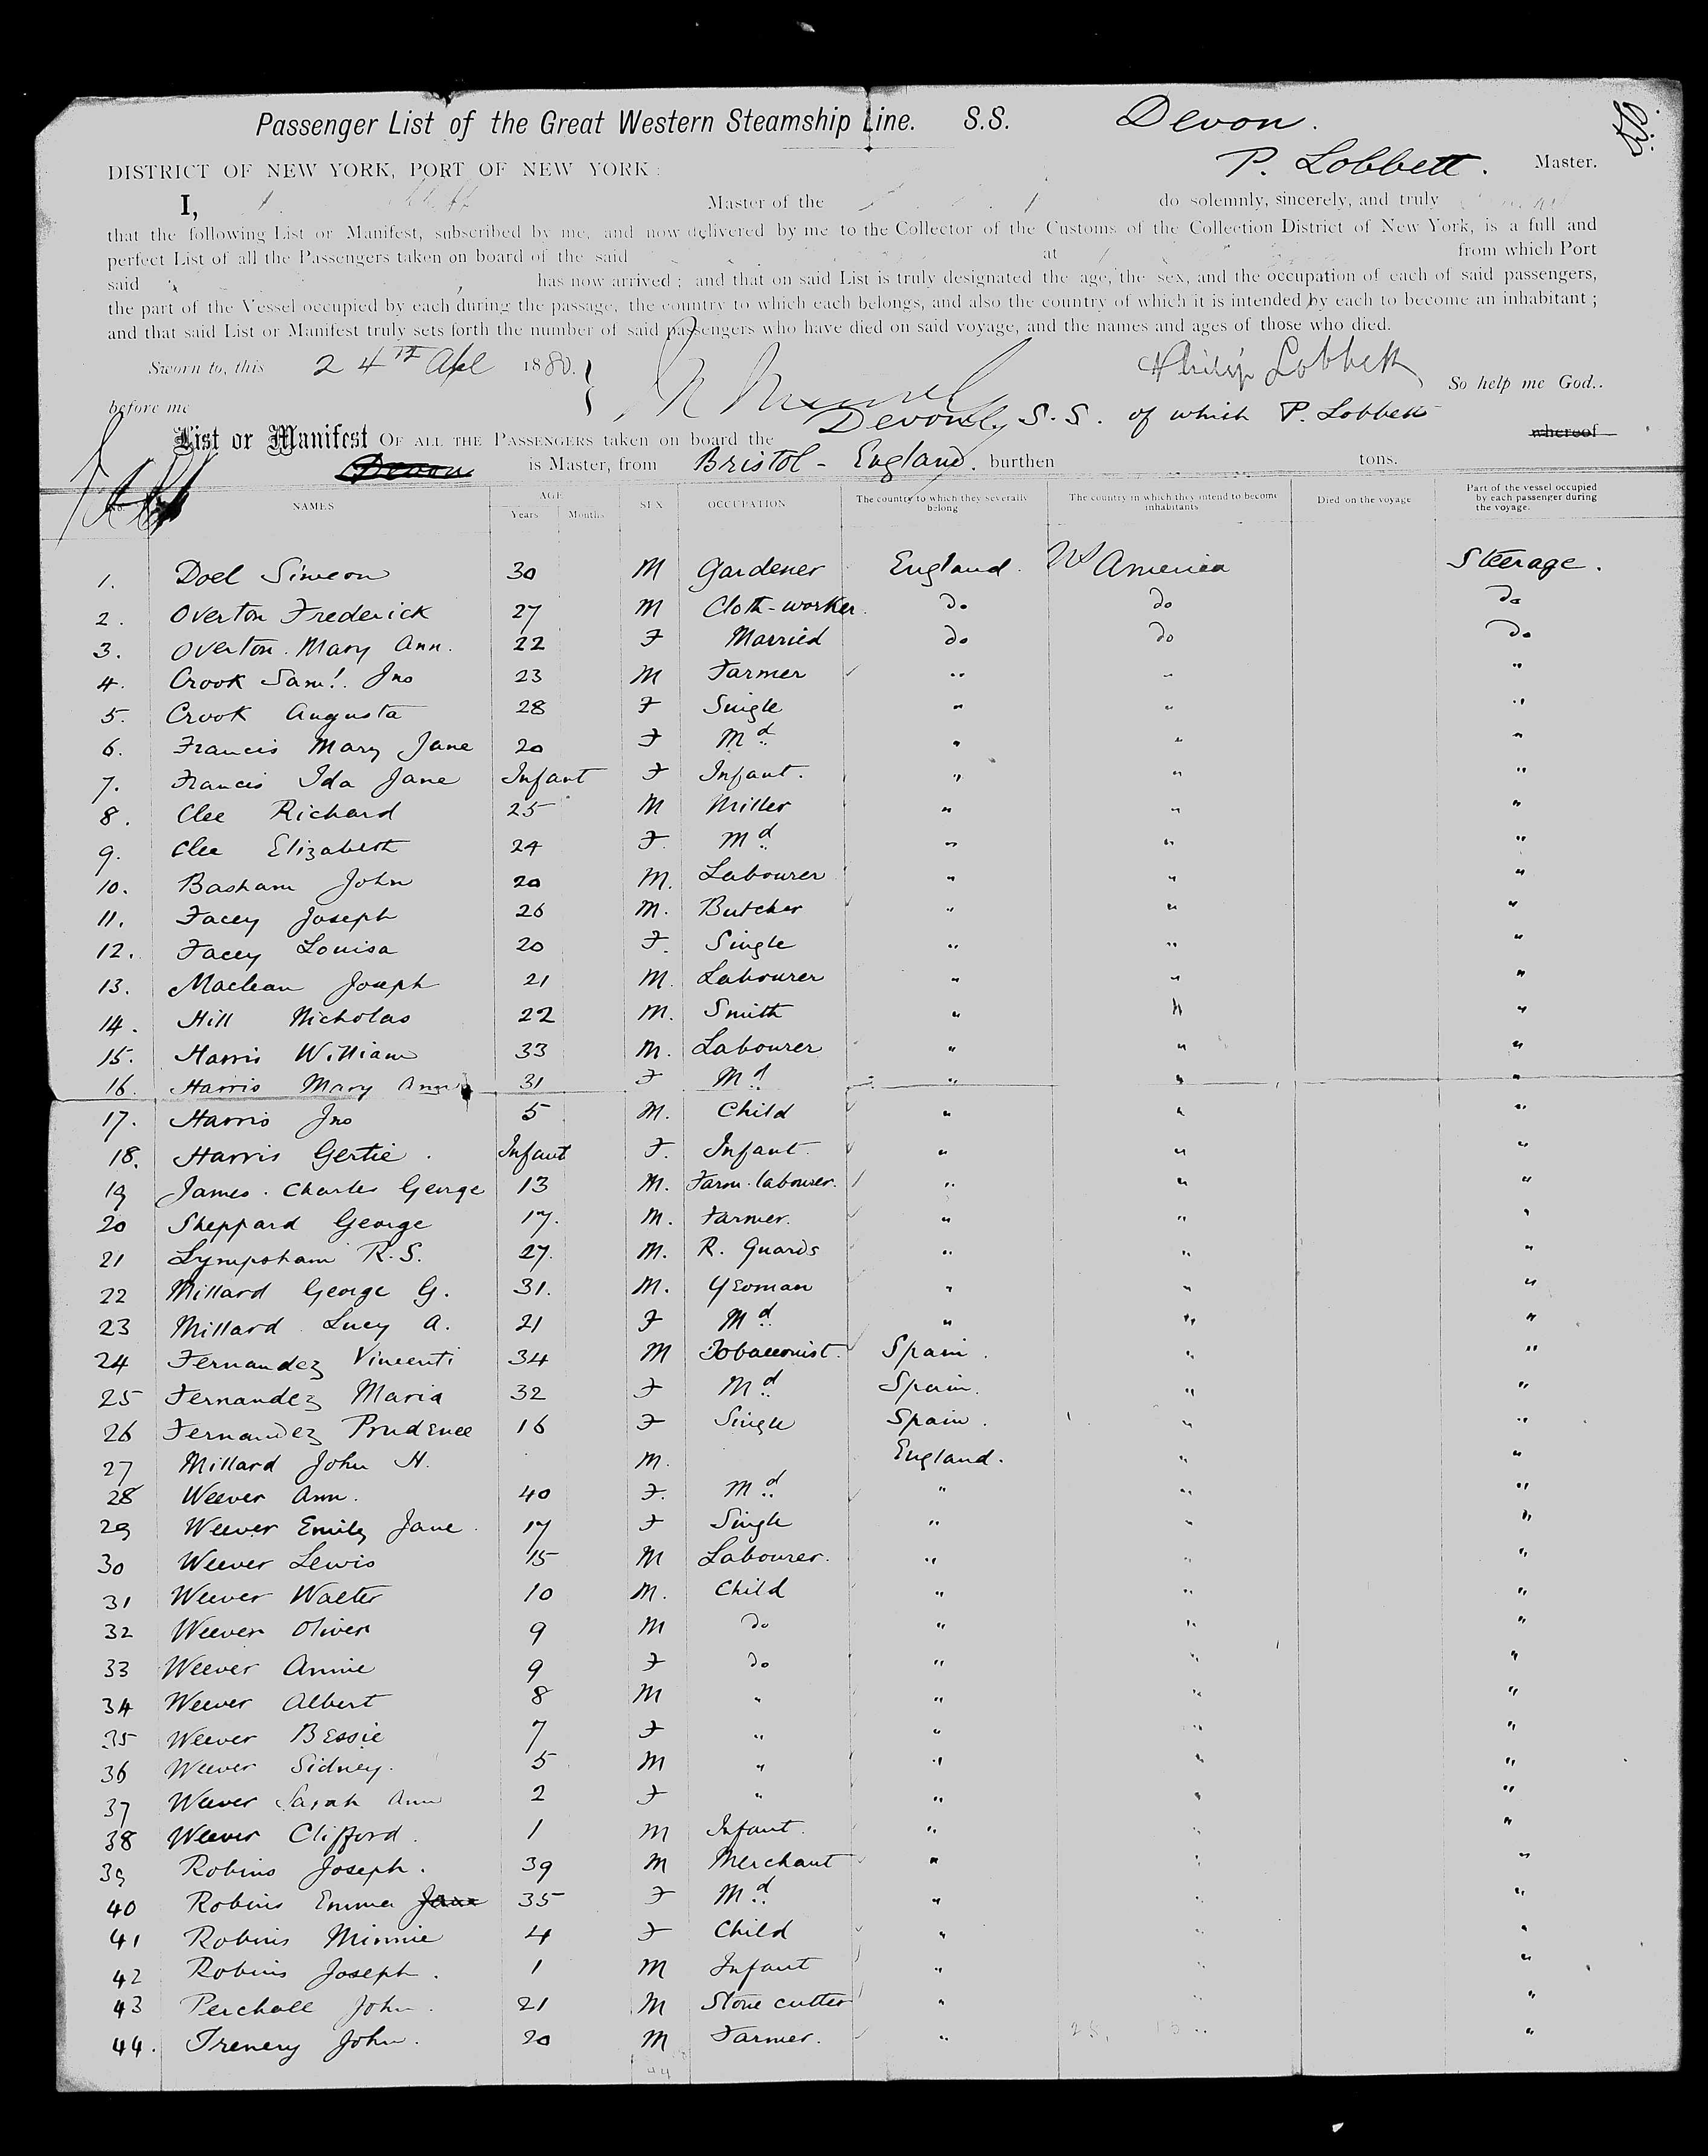 Passenger List of the Great Western Steamship Line. S.S. Devon.
DISTRICT OF NEW YORK, PORT OF NEW YORK: P. Lobbett. Master.
I, Master of the do solemnly, sincerely, and truly
that the following List or Manifest, subscribed by me, and now delivered by me to the Collector of the Customs of the Collection District of New York, is a full and
perfect List of all the Passengers taken on board of the said at from which Port
said has now arrived; and that on said List is truly designated the age, the sex, and the occupation of each of said passengers,
the part of the Vessel occupied by each during the passage, the country to which each belongs, and also the country of which it is intended by each to become an inhabitant;
and that said List or Manifest truly sets forth the number of said passengers who have died on said voyage, and the names and ages of those who died.
Sworn to, this 24th Apl 1880. Philip Lobbett So help me God..
before me
List or Manifest OF ALL THE PASSENGERS taken on board the Devon S.S. of which P. Lobbett whereof
Devon is Master, from Bristol - England. burthen tons.
NAMES AGE Years Months SEX OCCUPATION The country to which they severally belong The country in which they intend to become inhabitants Died on the voyage Part of the vessel occupied by each passenger during the voyage.
1. Doel Simeon 30 M Gardener England. America Steerage.
2. Overton Frederick 27 M Cloth-worker. Do Do Do
3. Overton. Mary Ann. 22 F Married Do Do Do
4. Crook Saml. Jno 23 M Farmer " " "
5. Crook Augusta 28 F Single " " "
6. Francis Mary Jane 20 F Md " " "
7. Francis Ida Jane Infant F Infant. " " "
8. Clee Richard 25 M Miller " " "
9. Clee Elizabeth 24 F. Md " " "
10. Basham John 20 M. Labourer " " "
11. Facey Joseph 26 M. Butcher " " "
12. Facey Louisa 20 F. Single " " "
13. Maclean Joseph 21 M. Labourer " " "
14. Hill Nicholas 22 M. Smith " " "
15. Harris William 33 M. Labourer " " "
16. Harris Mary Ann 31 F Md " " "
17. Harris Jno 5 M. Child " " "
18. Harris Gertie. Infant F. Infant. " " "
19 James. Charles George 13 M. Farm. labourer. " " "
20 Sheppard George 17. M. Farmer. " " "
21 Lympsham R.S. 27. M. R. Guards " " "
22 Millard George G. 31. M. Yeoman " " "
23 Millard Lucy A. 21 F Md " " "
24 Fernandez Vincenti 34 M Tobacconist. Spain. " "
25 Fernandez Maria 32 F Md Spain. " "
26 Fernandez Prudence 16 F Single Spain. " "
27 Millard John H. M. England. " "
28 Weever Ann. 40 F. Md " " "
29 Weever Emily Jane. 17 F Single " " "
30 Weever Lewis 15 M Labourer. " " "
31 Weever Walter 10 M. Child " " "
32 Weever Oliver 9 M do " " "
33 Weever Annie 9 F do " " "
34 Weever Albert 8 M " " " "
35 Weever Bessie 7 F " " " "
36 Weever Sidney. 5 M " " " "
37 Weever Sarah Ann 2 F " " " "
38 Weever Clifford. 1 M Infant. " " "
39 Robins Joseph. 39 M Merchant " " "
40 Robins Emma Jane 35 F Md " " "
41 Robins Minnie 4 F Child " " "
42 Robins Joseph. 1 M Infant " " "
43 Perchall John. 21 M Stone cutter " " "
44. Trenery John. 20 M Farmer. " " "